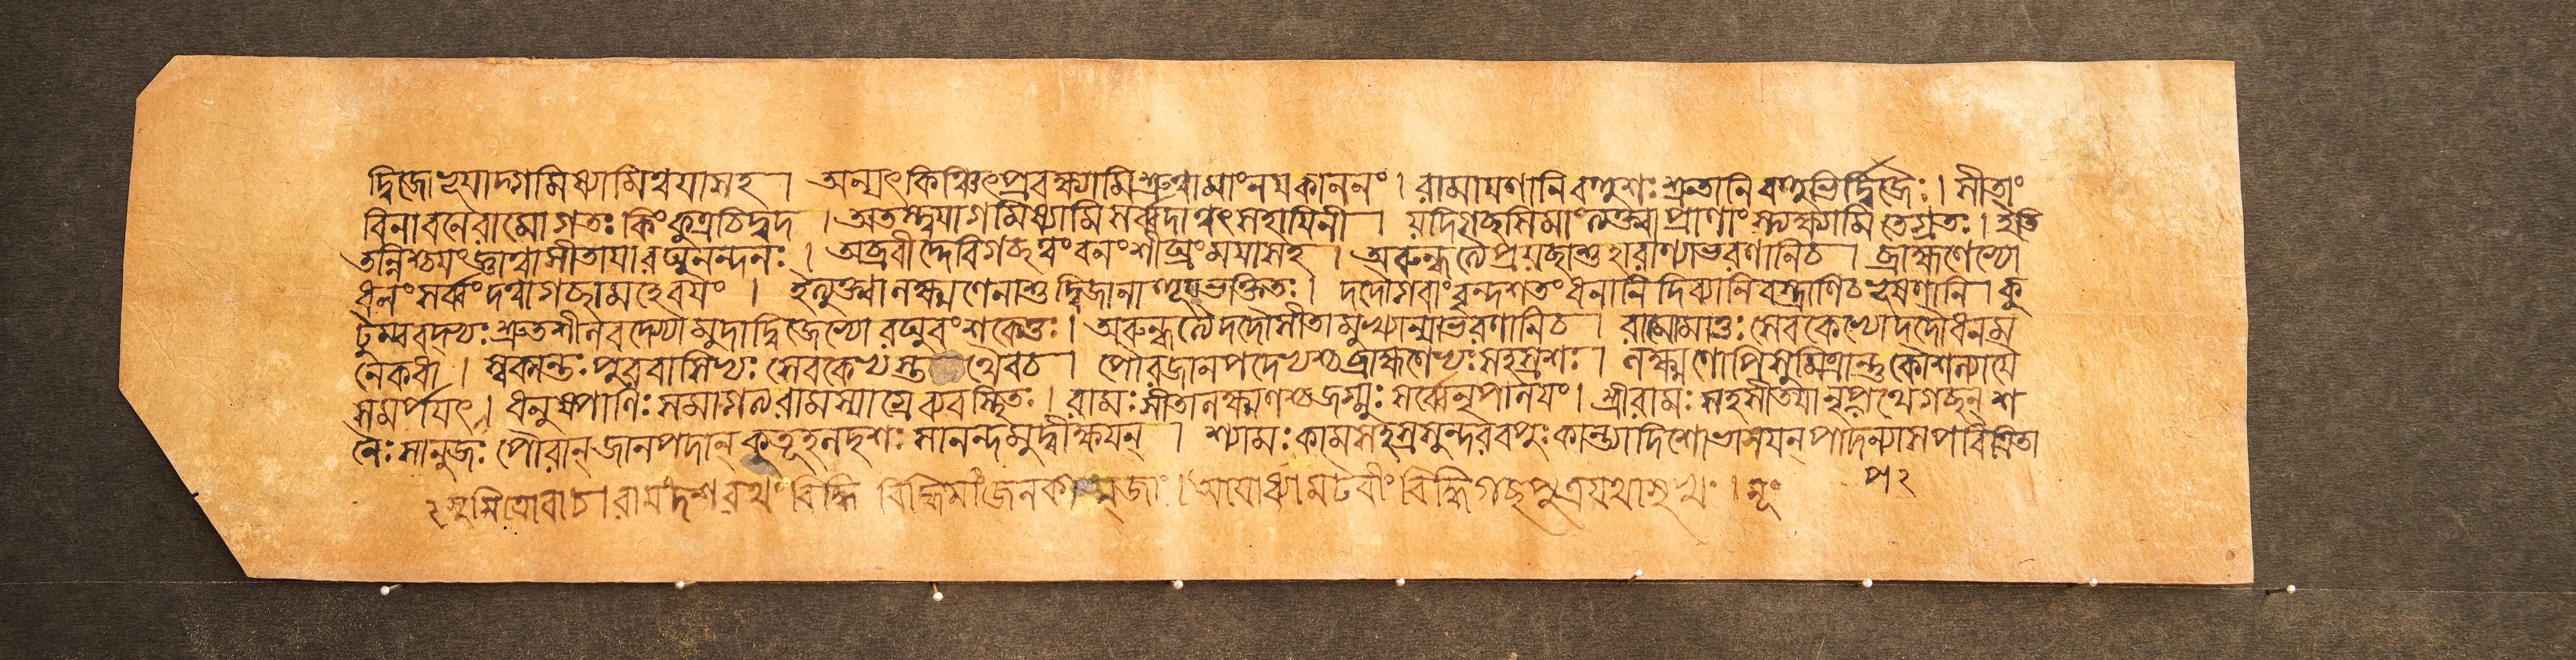 দ্বিজোহ্যাদ্গমিষ্যামিত্বয়াসহ । অন্যৎকিঞ্চিৎপ্রবক্ষ্যামিশ্রুত্বামাংনয়কাননং । রামায়ণানিবহুশঃশ্রুতানিবহুভির্দ্বিজৈঃ । সীতাং
বিনাবনেরামোগতঃকিংকুত্রচিদ্বদ । অতস্ত্বয়াগমিষ্যামিসর্ব্বদাত্বৎসহায়িনী । যদিগচ্ছসিমাংত্যক্ত্বাপ্রাণাংস্ত্যক্ষ্যামিতেগ্রতঃ । ইতি
তন্নিশ্চয়ংজ্ঞাত্বাসীতায়ারঘুনন্দনঃ । অব্রবীদ্দেবিগচ্ছত্বংবনংশীঘ্রংময়াসহ । অরুন্ধত্যৈপ্রয়চ্ছাশুহারাণ্যাভরণানিচ । ব্রাহ্মণেভ্যো
ধনংসর্ব্বংদত্বাগচ্ছামহেবয়ং । ইত্যুক্ত্বালক্ষ্মণেনাশুদ্বিজানাহূয়ভক্তিতঃ । দদৌগবাংবৃন্দশতংধনানিদিব্যানিবস্ত্রাণিচভূষণানি । কু
টুম্ববদ্ভ্যঃশ্রুতশীলবদ্ভ্যোমুদাদ্বিজেভ্যোরঘুবংশকেতুঃ । অরুন্ধত্যৈদদৌসীতামুখ্যান্যাভরণানিচ । রামোমাতুঃসেবকেভ্যোদদৌধনম
নেকধা । স্বকান্তঃপুরবাসিভ্যঃসেবকেভ্যস্ত থৈবচ । পৌরজানপদেভ্যশ্চব্রাহ্মণেভ্যঃসহস্রশঃ । লক্ষ্মণোপিসুমিত্রান্তুকৌশল্যায়ৈ
সমর্পয়ৎ । ধনুষ্পাণিঃসমাগত্যরামস্যাগ্রেব্যবস্থিতঃ । রামঃসীতালক্ষ্মণশ্চজগ্মুঃসর্ব্বেনৃপালয়ং । শ্রীরামঃসহসীতয়ানৃপপথেগচ্ছন্শ
নৈঃসানুজঃপৌরান্জানপদান্কুতূহলদৃশঃসানন্দমুদ্বীক্ষয়ন্ । শ্যামঃকামসহস্রসুন্দরবপুঃকান্ত্যাদিশোভাসয়ন্পাদন্যাসপবিত্রিতা
২সুমিত্রোবাচ।রামংদশরথংবিদ্ধি বিদ্ধিমাংজনকাত্মজাং।অযোধ্যামটবীংবিদ্ধিগচ্ছপুত্রযথাসুখং । মূং প২